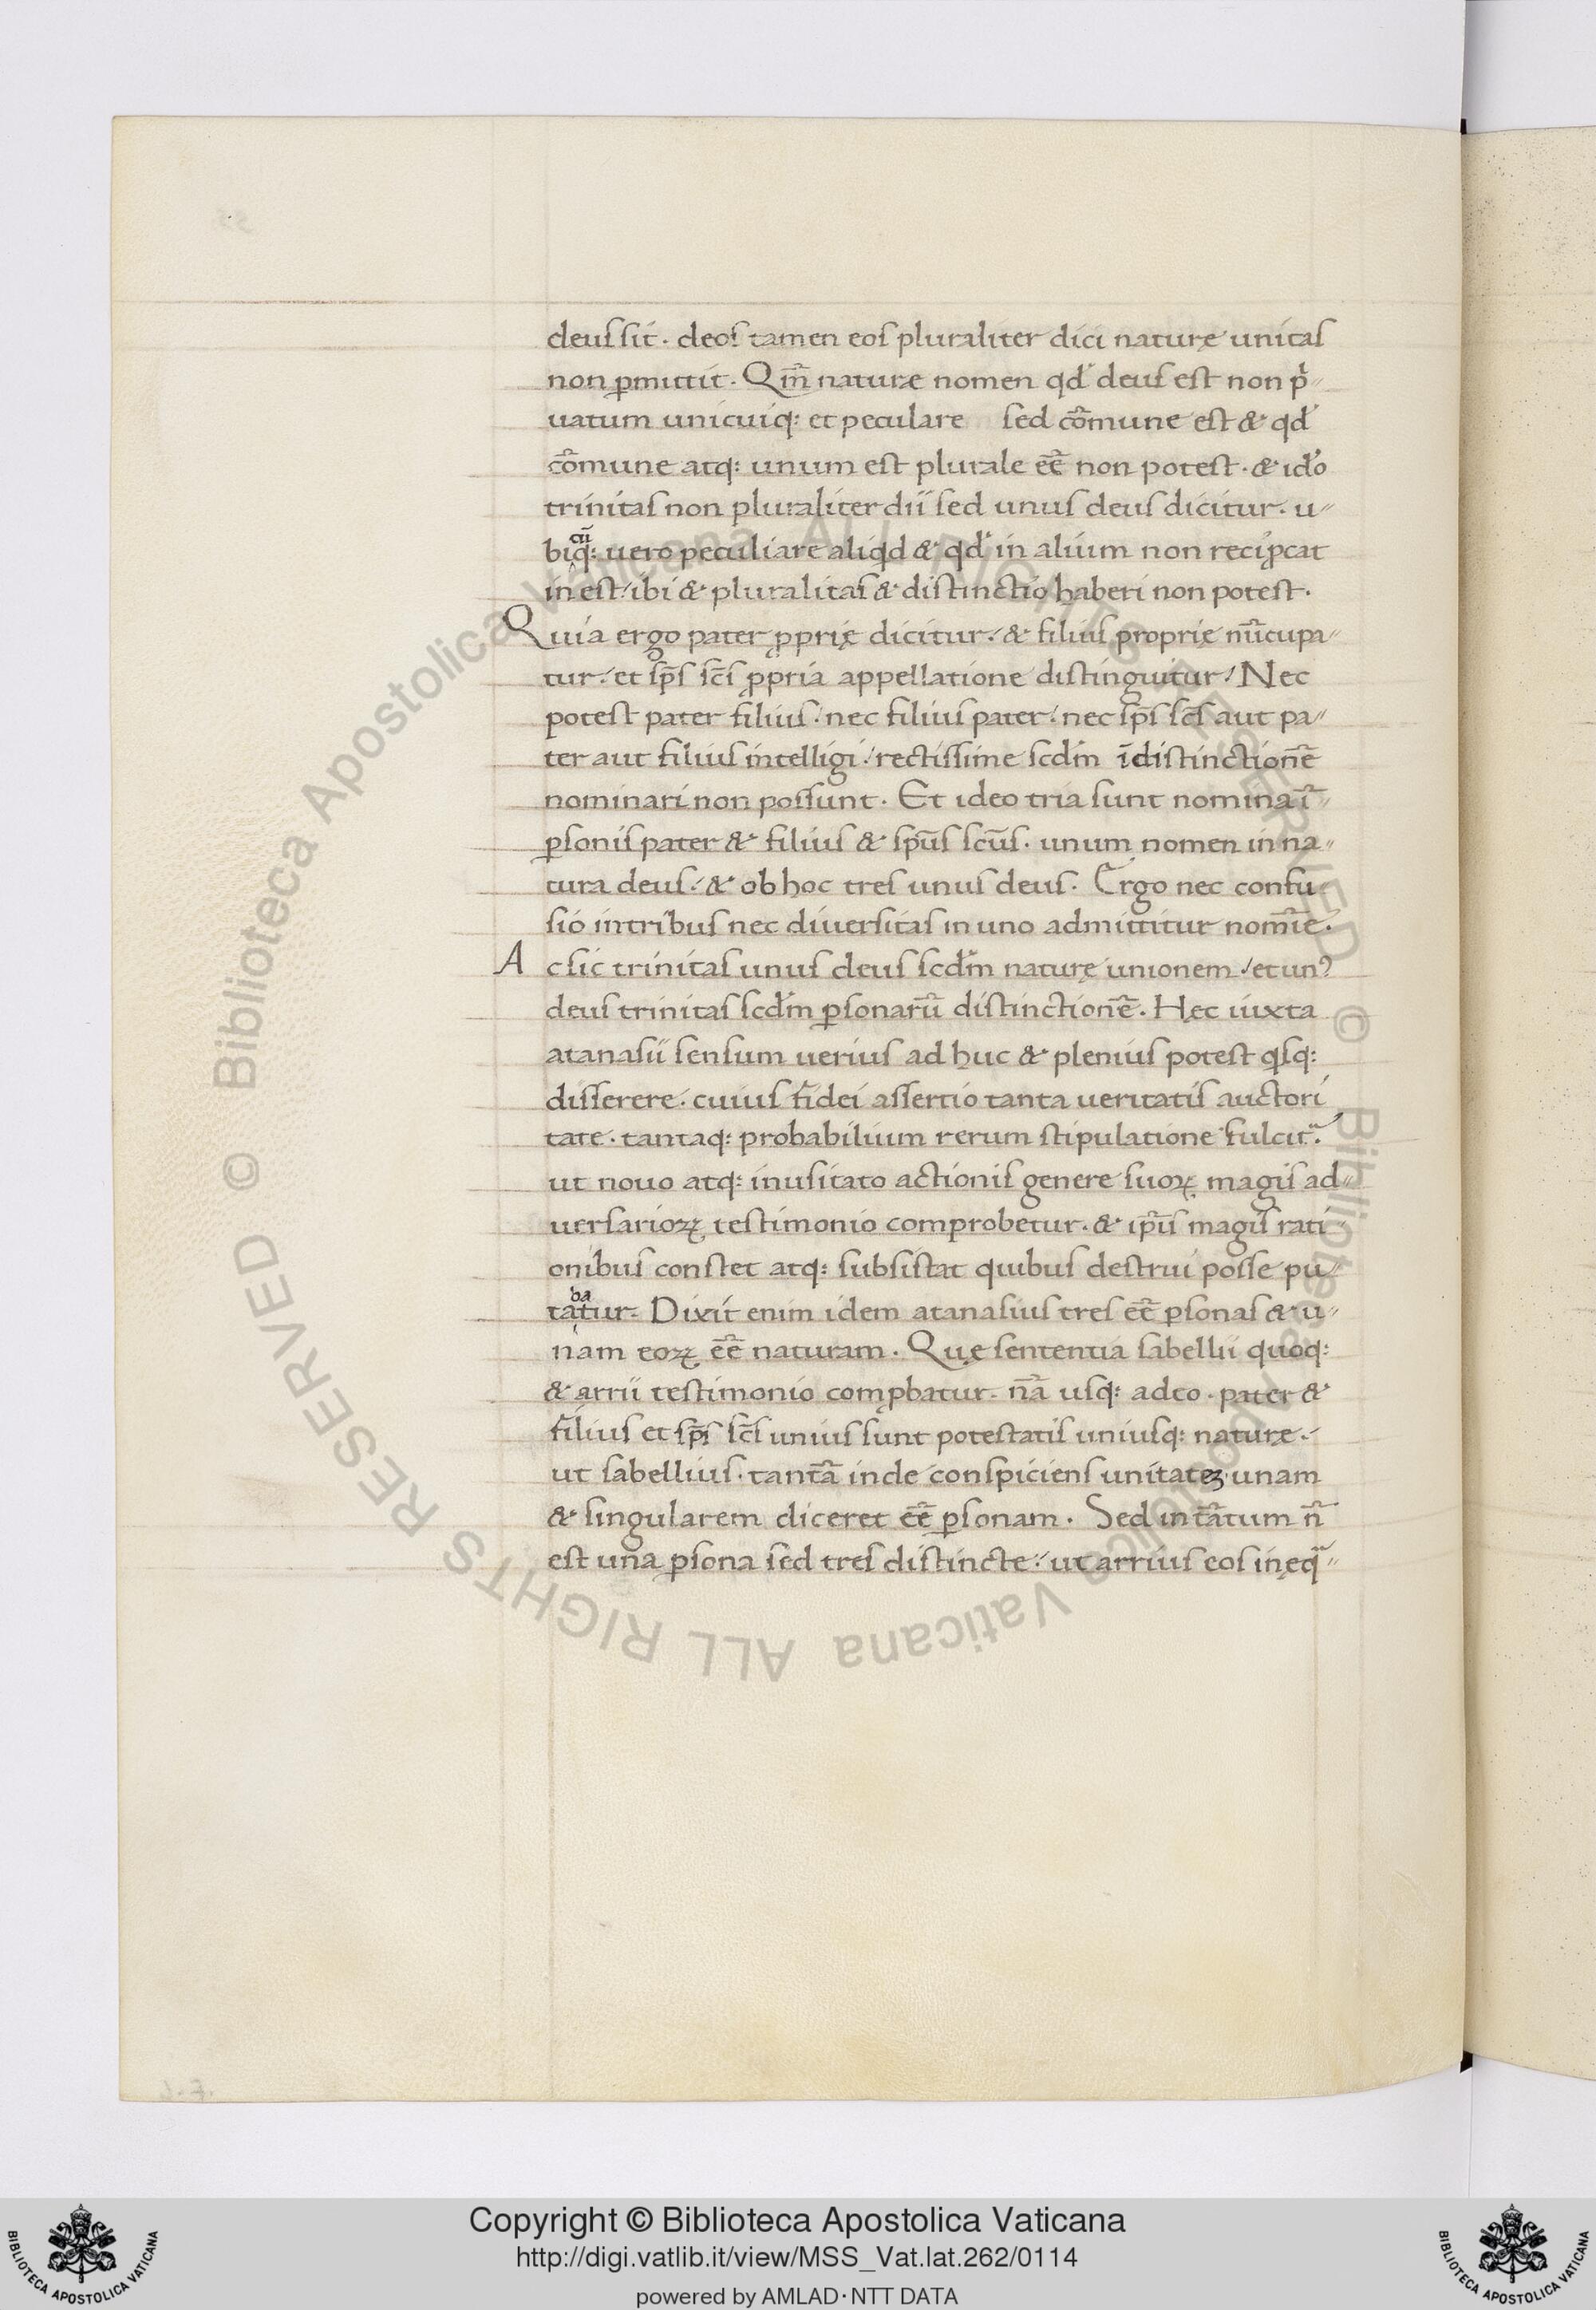 deus sit. deos tamen eos pluraliter dici naturę unitas
non ꝑmittit. Qm̄ naturæ nomen qd' deus est non p̍⸗
uatum unicuiq: et peculare sed cōmune est & qd'
cōmune atq: unum est plurale ēē non potest. & id'o
trinitas non pluraliter dii sed unus deus dicitur. u⸗
biq: cū uero peculiare aliqd & qd' in alium non recip̍cat
in est / ibi & pluralitas & distinctio haberi non potest.
Quia ergo pater ꝓprię dicitur. & filius proprię nūcupa⸗
tur. et sp̄s sc̄s ꝓpria appellatione distinguitur / Nec
potest pater filius. nec filius pater. nec sp̄s sc̄s aut pa⸗
ter aut filius intelligi / rectissime scd'm īdistinctionē
nominari non possunt. Et ideo tria sunt nomina ī⸗
ꝑsonis pater & filius & sp̄us sc̄us. unum nomen in na⸗
tura deus. & ob hoc tres unus deus. Ergo nec confu⸗
sio in tribus nec diuersitas in uno admittitur nom̄ie.
Ac sic trinitas unus deus scd'm naturę unionem / et unꝰ
deus trinitas scd'm ꝑsonarū distinctionē. Hęc iuxta
atanasii sensum uerius ad huc & plenius potest qsq:
disserere. cuius fidei assertio tanta ueritatis auctori
tate. tantaq: probabilium rerum stipulatione fulcit̃.
ut nouo atq: inusitato actionis genere suoꝝ magis ad⸗
uersarioꝝ testimonio comprobetur. & ip̄is magis rati⸗
onibus constet atq: subsistat quibus destrui posse pu⸗
tabatur. Dixit enim idem atanasius tres ēē ꝑsonas & u⸗
nam eoꝝ ēē naturam. Quę sententia sabellii quoq:
& arrii testimonio comꝓbatur. nā usq: adeo. pater &
filius et sp̄s sc̄s unius sunt potestatis uniusq: naturę.
ut sabellius. tantā inde conspiciens unitateꝫ unam
& singularem diceret ēē ꝑsonam. Sed in tātum n̄
est una ꝑsona sed tres distincte. ut arrius eos inęq̄⸗
Copyright © Biblioteca Apostolica Vaticana
http://digi.vatlib.it/view/MSS_Vat.lat.262/0114
powered by AMLAD·NTT DATA
BIBLIOTECA APOSTOLICA VATICANA
BIBLIOTECA APOSTOLICA VATICANA
© Biblioteca Apostolica Vaticana ALL RIGHTS RESERVED
© Biblioteca Apostolica Vaticana ALL RIGHTS RESERVED